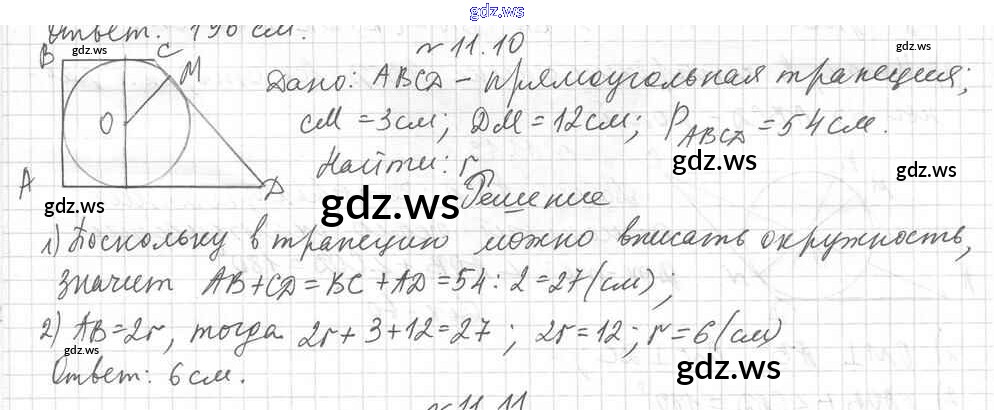 gdz.ws
Ответ: 196 см.
N 11.10
B gdz.ws C M
Дано: ABCD - прямоугольная трапеция;
O
CM = 3 см; DM = 12 см; P_ABCD = 54 см.
gdz.ws gdz.ws
Найти: r
A D
gdz.ws gdz.ws Решение
1) Поскольку в трапецию можно вписать окружность,
значит AB + CD = BC + AD = 54 : 2 = 27 (см);
gdz.ws
2) AB = 2r, тогда 2r + 3 + 12 = 27; 2r = 12; r = 6 (см)
gdz.ws gdz.ws
Ответ: 6 см.
gdz.ws
N 11.11